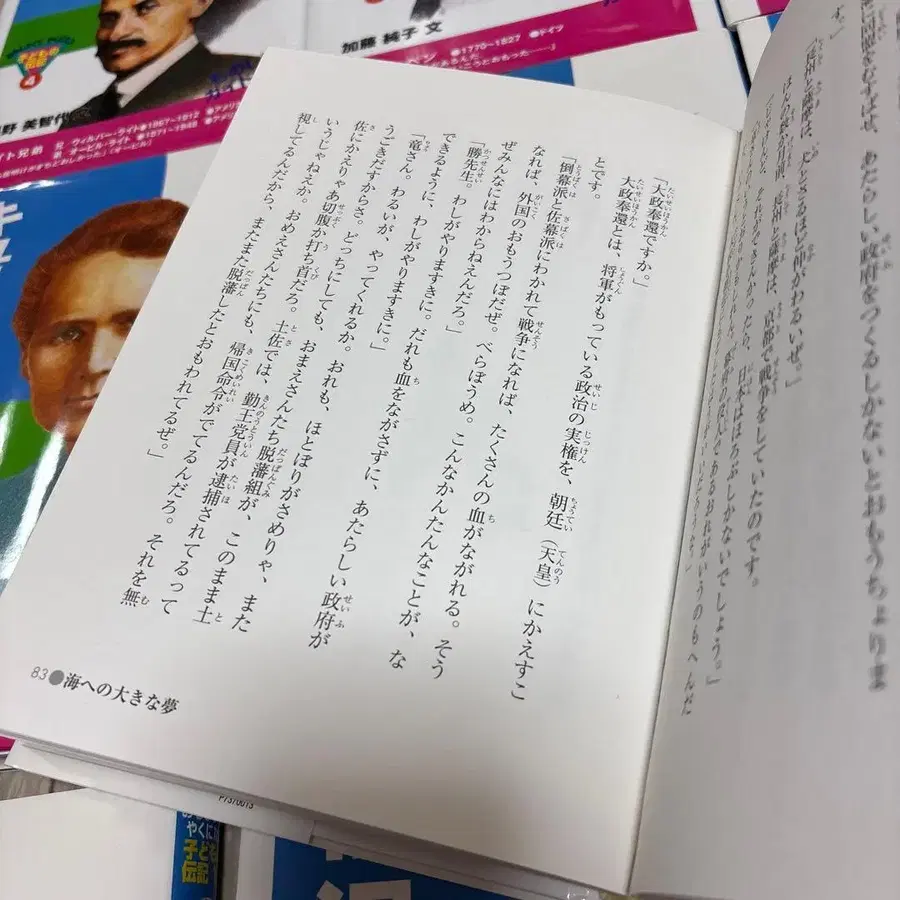 す。」
「長州と薩摩は、犬とさるほど仲がわるいぜ。」
ほんの数か月前、長州と薩摩は、京都で戦争をしていたのです。
「それができんかったら、日本はほろぶしかないでしょう。」
「大政奉還ですか。」
大政奉還とは、将軍がもっている政治の実権を、朝廷（天皇）にかえすこ
とです。
「倒幕派と佐幕派にわかれて戦争になれば、たくさんの血がながれる。そう
なれば、外国のおもうつぼだぜ。べらぼうめ。こんなかんたんなことが、な
ぜみんなにはわからねえんだろ。」
「勝先生。わしがやりますきに。だれも血をながさずに、あたらしい政府が
できるように、わしがやりますきに。」
「竜さん。わるいが、やってくれるか。おれも、ほとぼりがさめりゃ、また
うごきだすからさ。どっちにしても、おまえさんたち脱藩組が、このまま土
佐にかえりゃあ切腹か打ち首だろ。土佐では、勤王党員が逮捕されてるって
いうじゃねえか。おめえさんたちにも、帰国命令がでてるんだろ。それを無
視してるんだから、またまた脱藩したとおもわれてるぜ。」
83●海への大きな夢
加藤 純子 文
●1770~1827 ●ドイツ
子どもの伝記
4
野 美智代
ト兄弟 兄 ウィルバー・ライト●1867~1912 ●アメリ
弟 オービル・ライト●1871~1948 ●アメリ
キュ
やくに
子ども
伝記